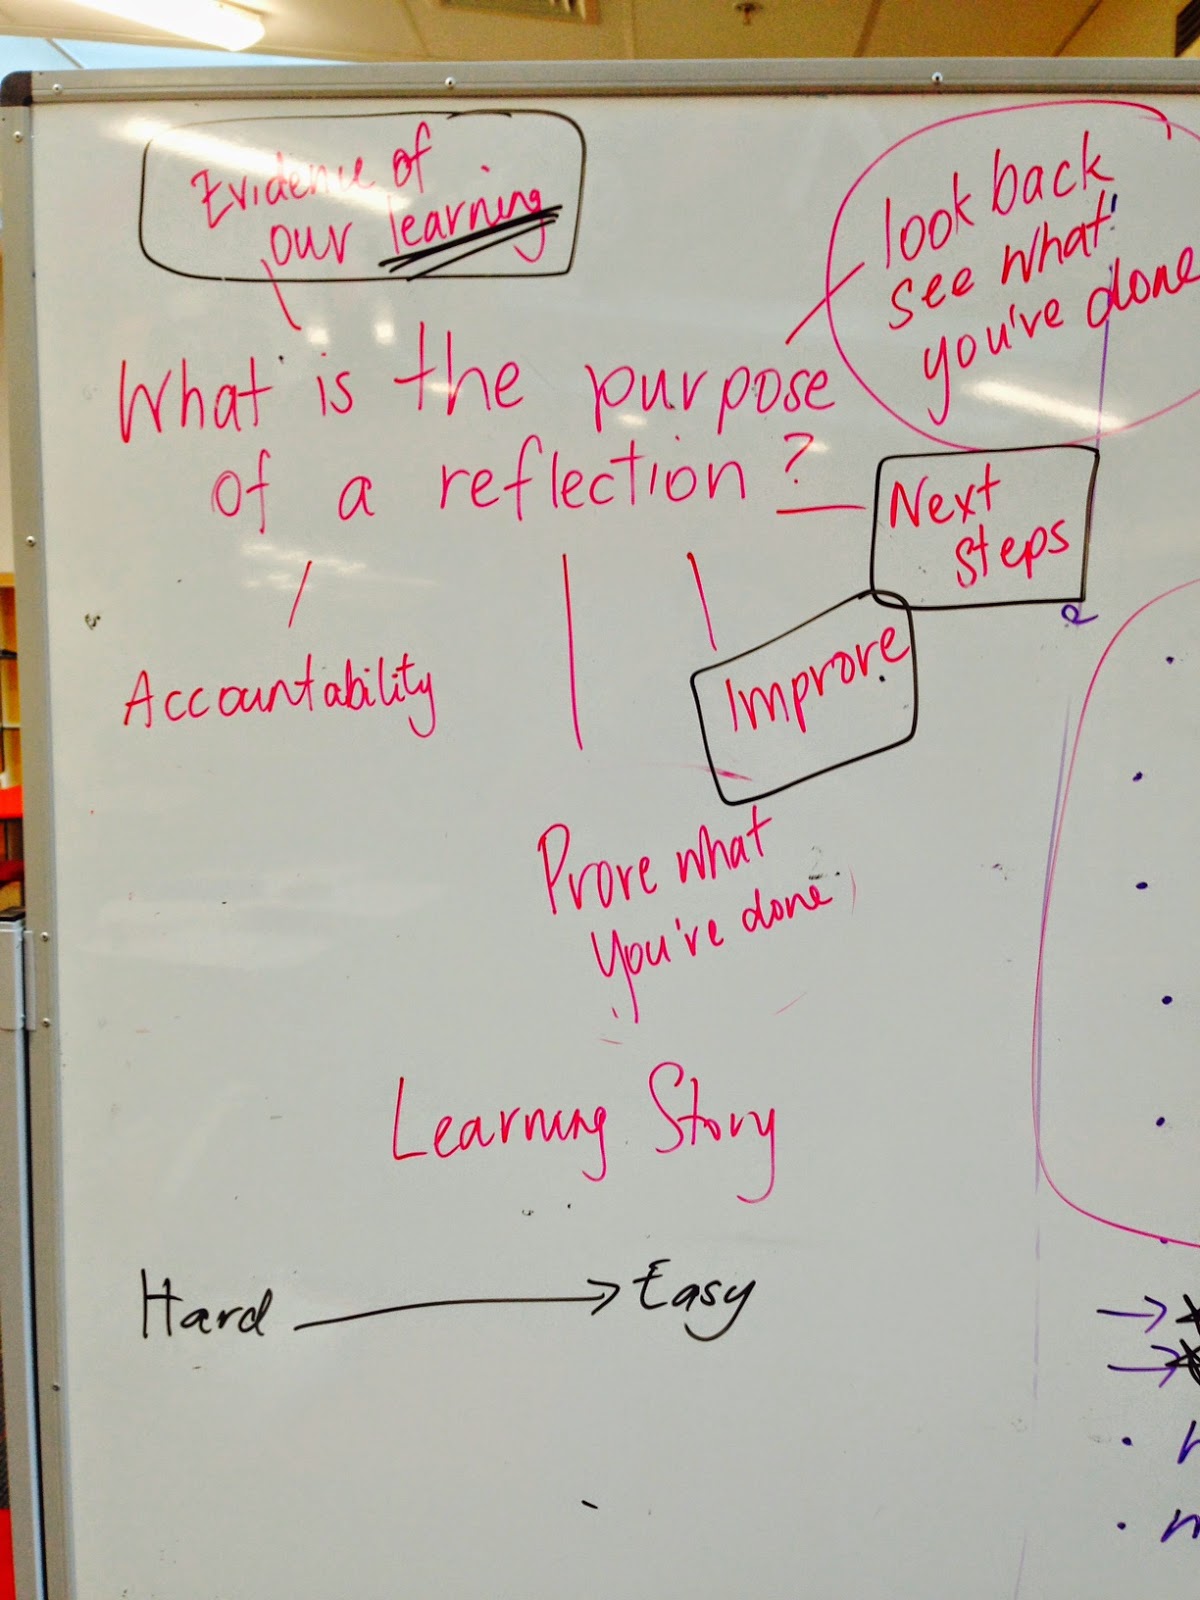 Evidence of
our learning
look back
see what
you've done
What is the purpose
of a reflection?
Next
steps
Accountability
Improve.
Prove what
you've done
Learning Story
Hard → Easy